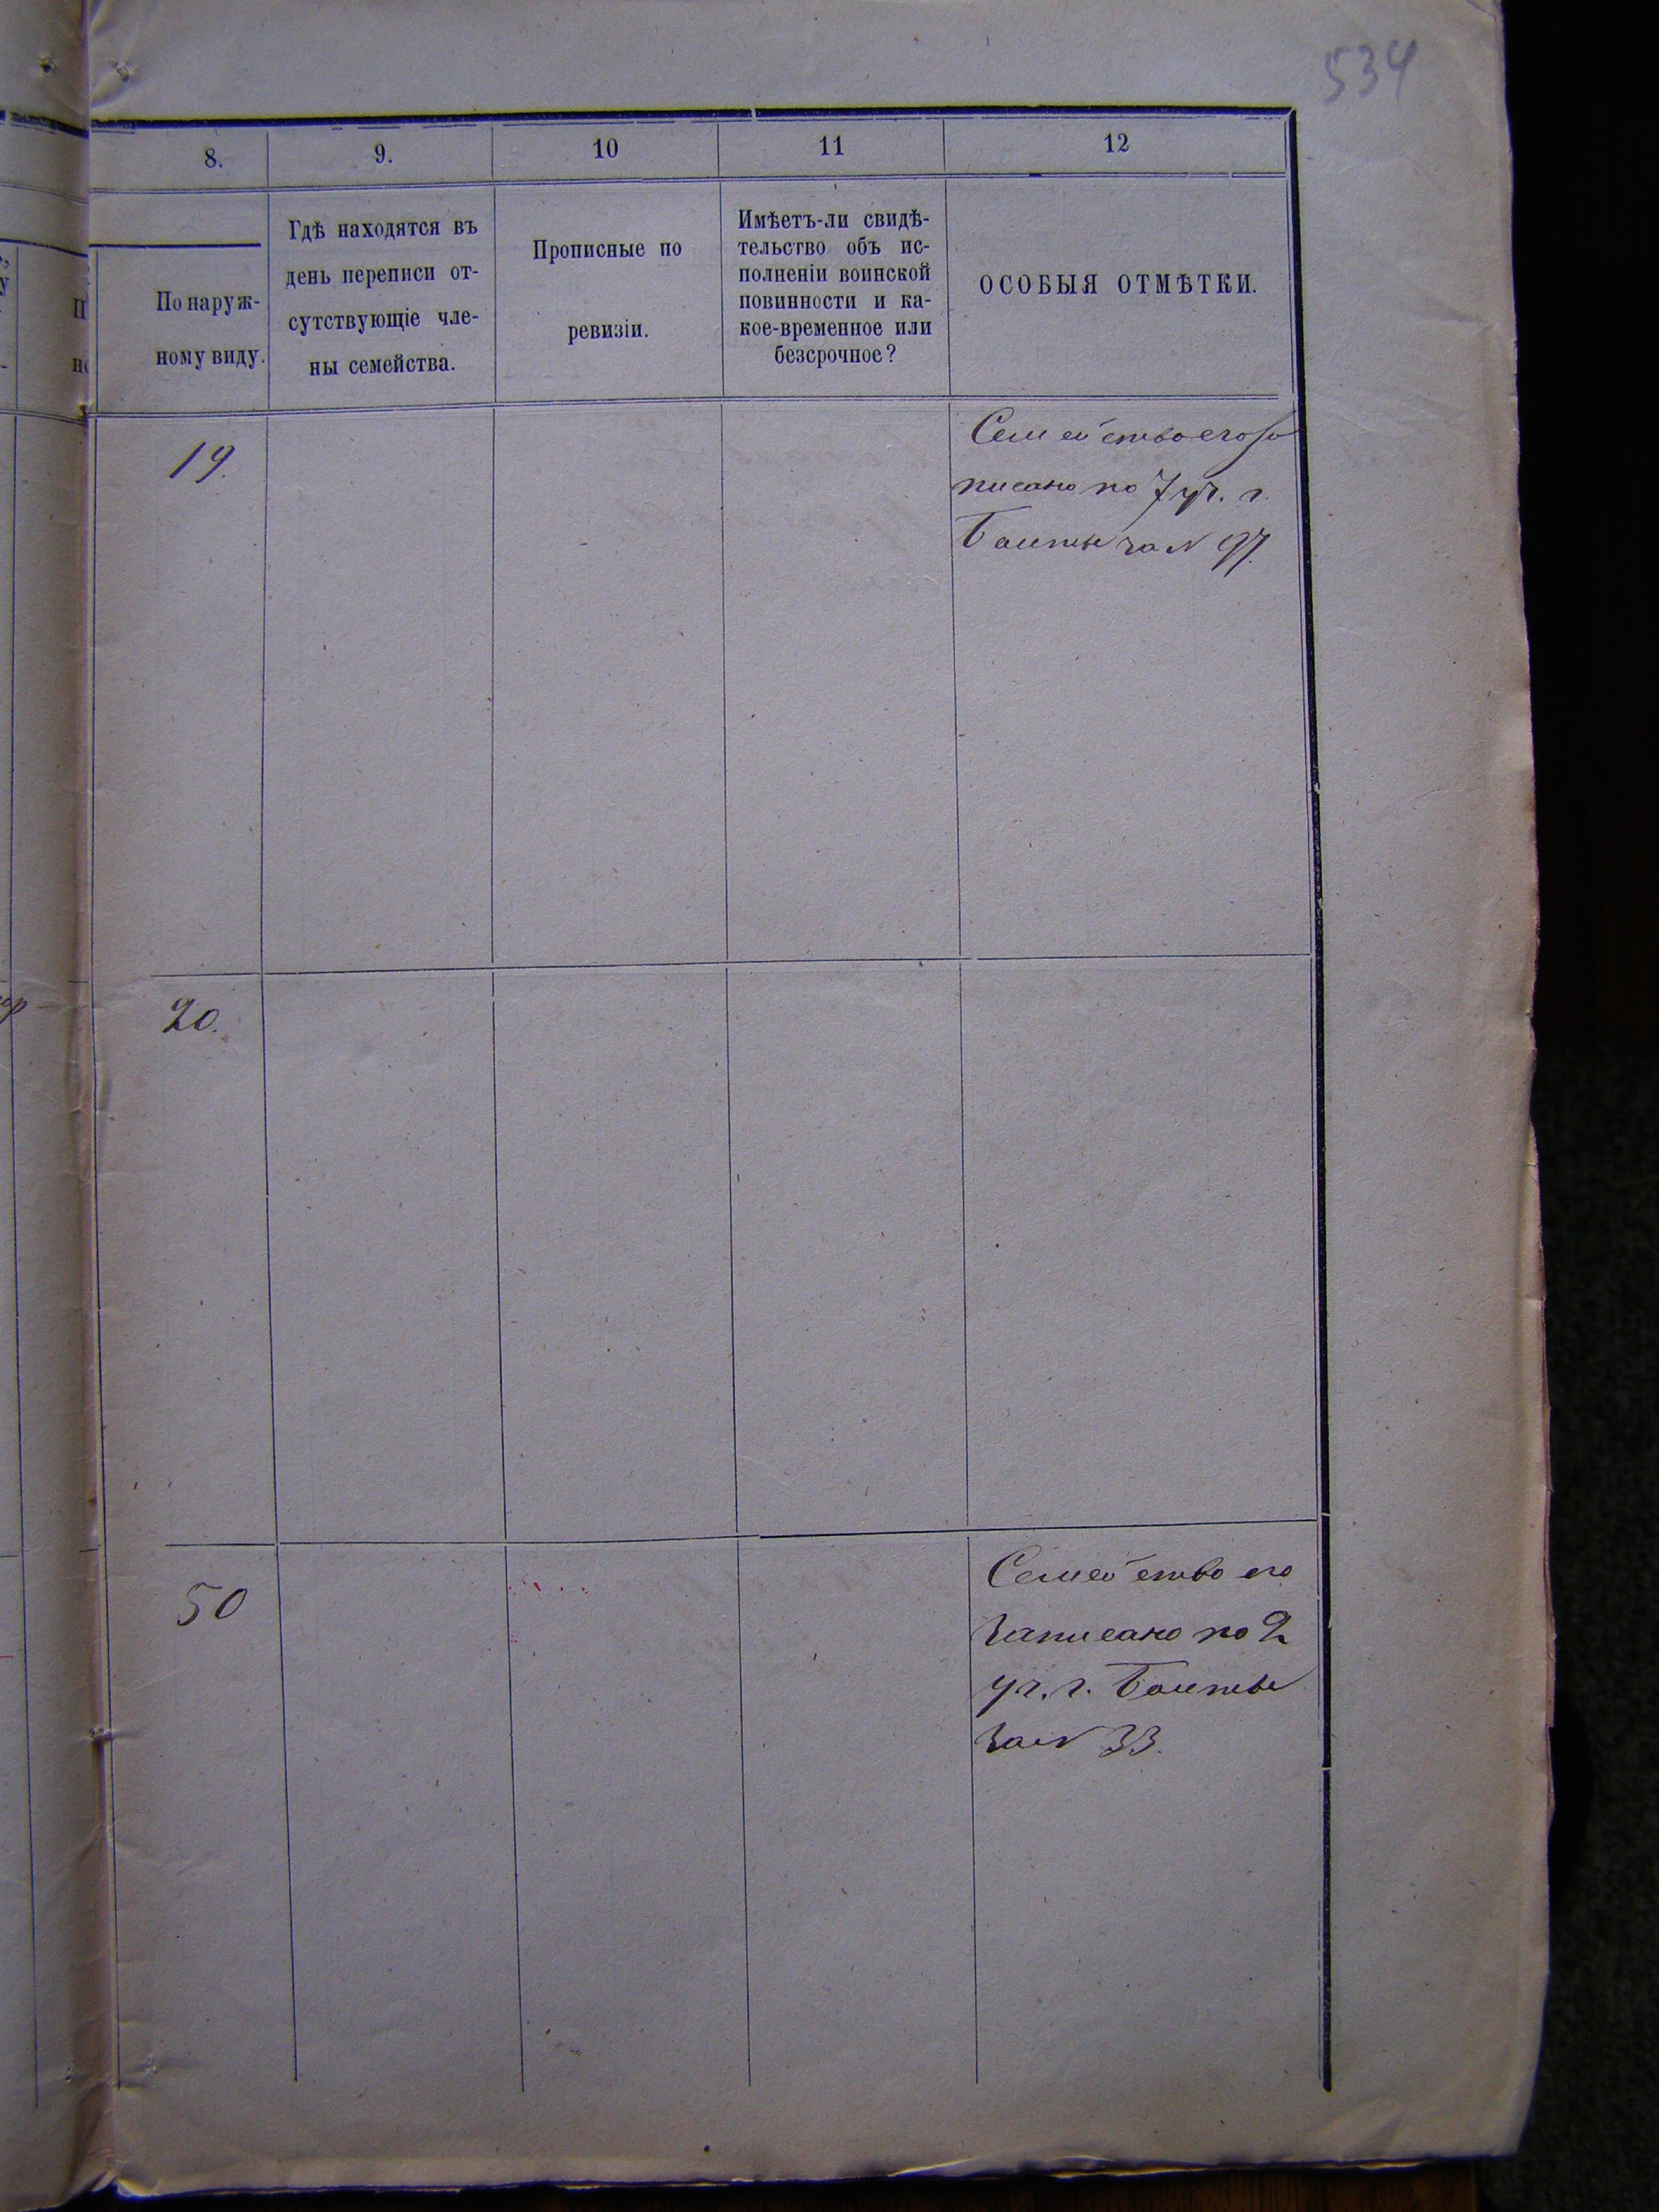 534
8.
9.
10
11
12
По наруж-
ному виду.
Гдѣ находятся въ
день переписи от-
сутствующіе чле-
ны семейства.
Прописные по
ревизіи.
Имѣетъ-ли свидѣ-
тельство объ ис-
полненіи воинской
повинности и ка-
кое-временное или
безсрочное?
ОСОБЫЯ ОТМѢТКИ.
19.
Семейство его за
писано по 7 уч. г.
Балты за N 97.
20.
50
Семейство его
записано по 2
уч. г. Балты
за N 33.